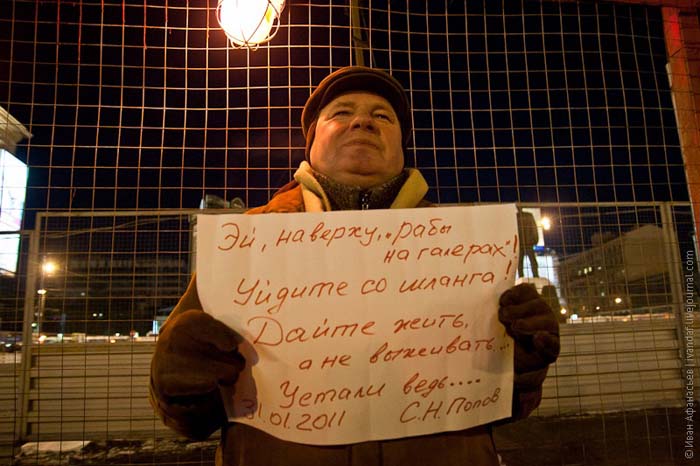 Эй, наверху, „рабы
на галерах"!
Уйдите со шланга!
Дайте жить,
а не выживать...
Устали ведь....
31.01.2011 С.Н.Попов
© Иван Афанасьев | ivandar.livejournal.com